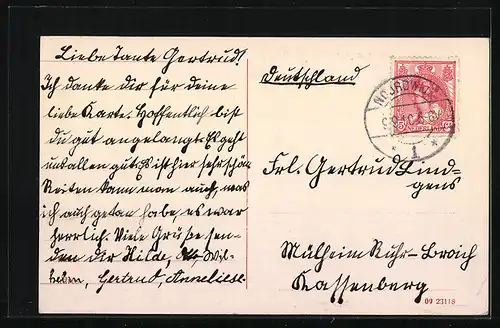 Liebe Tante Gertrud!
Ich danke dir für deine
liebe Karte. Hoffentlich bist
du gut angelangt. Es geht
uns allen gut. Es ist hier sehr schön
Reiten kann man auch, was
ich auch getan habe, es war
herrlich. Viele Grüße sen-
den dir Hilde, Otto, Wil-
helm, Gertrud, Anneliese.
Deutschland
NOORDWIJK
1
5
Frl. Gertrud Lind-
gens
Mülheim Ruhr-Broich
Kassenberg
09 23118